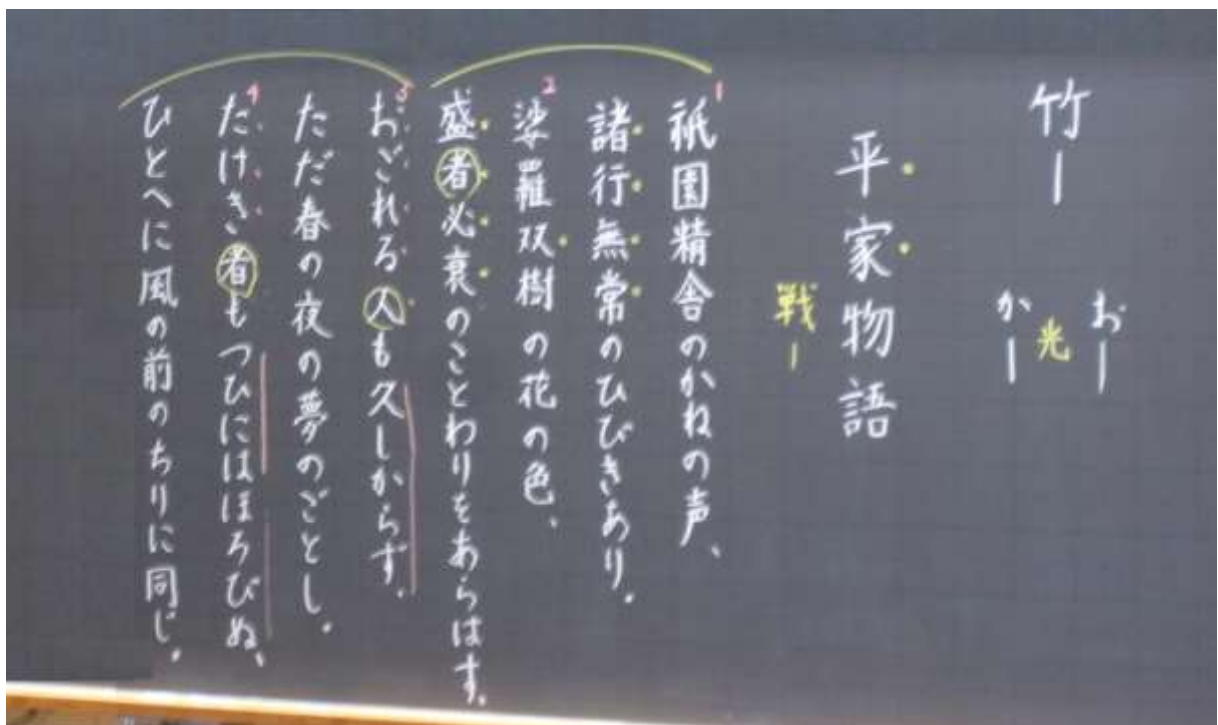 竹ー
おー
光
かー
平家物語
戦ー
1
祇園精舎のかねの声、
諸行無常のひびきあり。
2
娑羅双樹の花の色、
盛者必衰のことわりをあらはす。
3
おごれる人も久しからず。
ただ春の夜の夢のごとし。
4
たけき者もつひにはほろびぬ、
ひとへに風の前のちりに同じ。